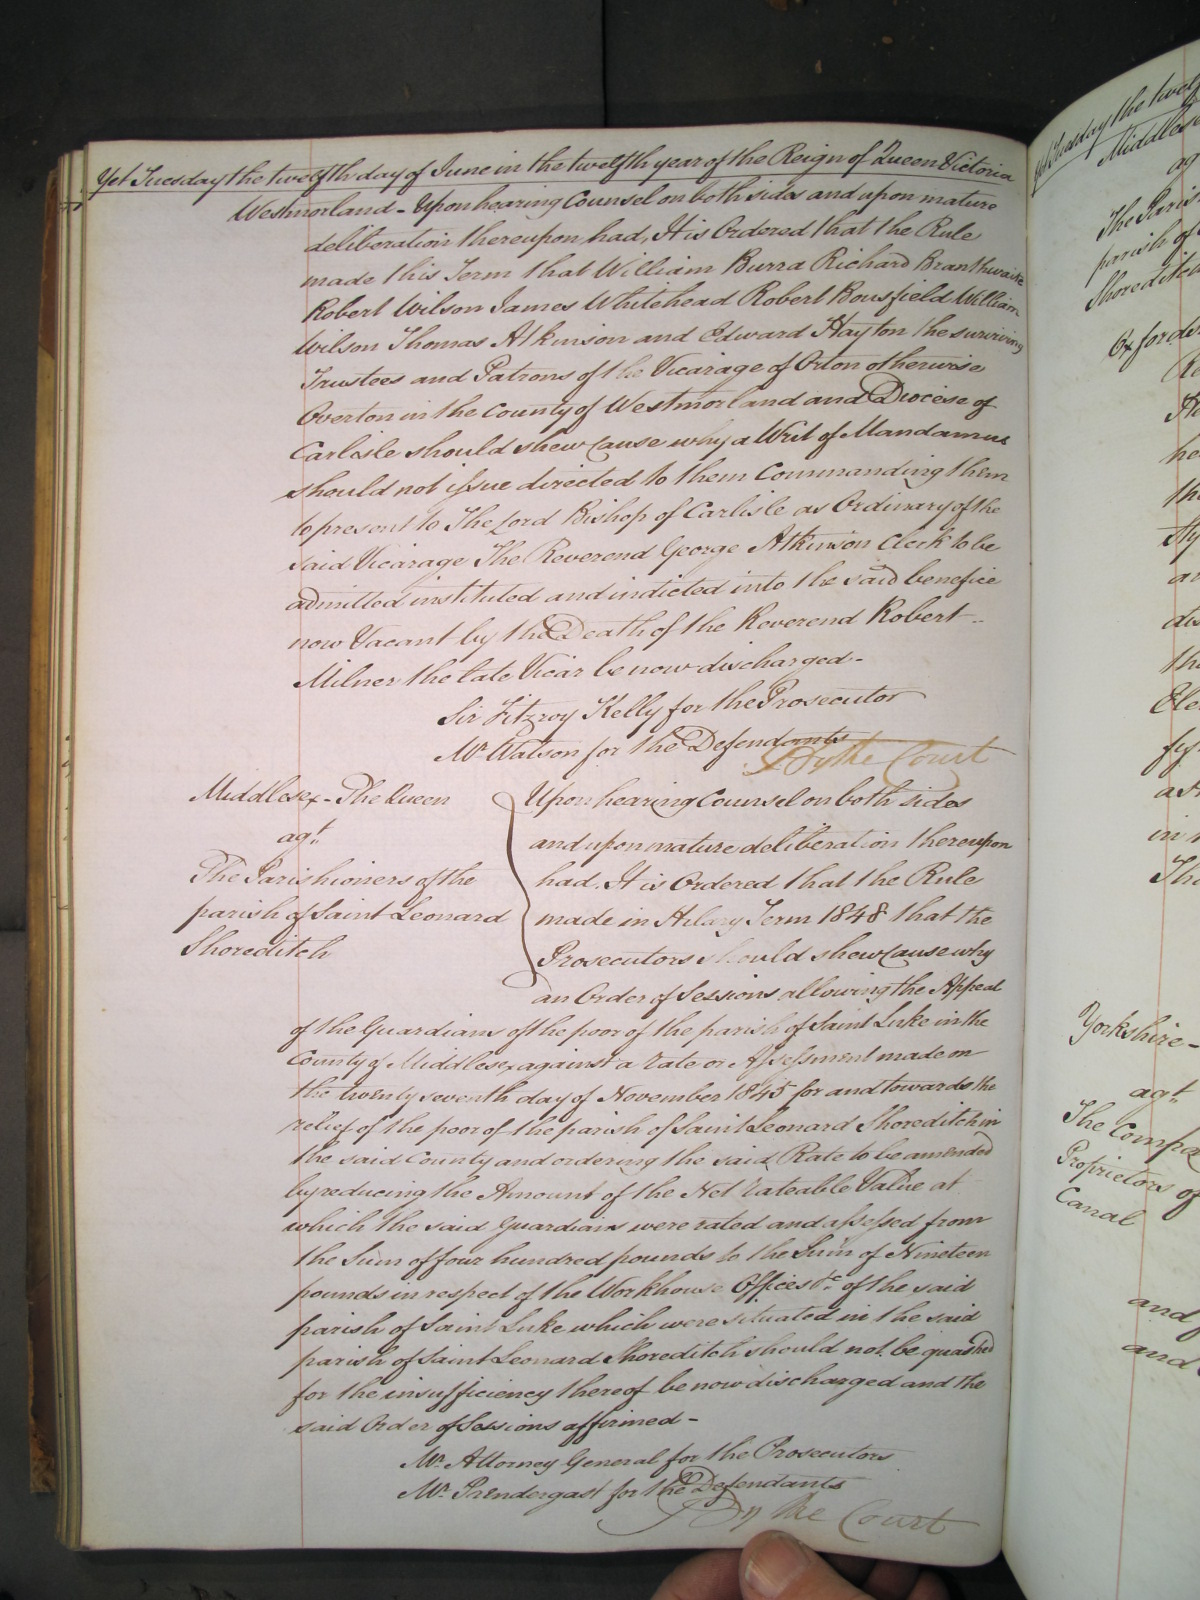 Yet Tuesday the twelfth day of June in the twelfth year of the Reign of Queen Victoria
Westmorland - Upon hearing Counsel on both sides and upon mature
deliberation thereupon had, It is Ordered that the Rule
made this Term that William Burra Richard Branthwaite
Robert Wilson James Whitehead Robert Bousfield William
Wilson Thomas Atkinson and Edward Hayton the surviving
Trustees and Patrons of the Vicarage of Orton otherwise
Overton in the County of Westmorland and Diocese of
Carlisle should shew Cause why a Writ of Mandamus
should not issue directed to them Commanding them
to present to The Lord Bishop of Carlisle as Ordinary of the
said Vicarage The Reverend George Atkinson Clerk to be
admitted instituted and indicted into the said benefice
now Vacant by the Death of the Reverend Robert
Milner the late Vicar be now discharged -
Sir Fitzroy Kelly for the Prosecutor
Mr. Watson for the Defendants
By the Court
Middlesex - The Queen
agt.
The Parishioners of the
parish of Saint Leonard
Shoreditch
Upon hearing Counsel on both sides
and upon mature deliberation thereupon
had. It is Ordered that the Rule
made in Hilary Term 1848 that the
Prosecutors should shew Cause why
an Order of Sessions allowing the Appeal
of the Guardians of the poor of the parish of Saint Luke in the
County of Middlesex against a rate or Assessment made on
the twenty seventh day of November 1845 for and towards the
relief of the poor of the parish of Saint Leonard Shoreditch in
the said County and ordering the said Rate to be amended
by reducing the Amount of the Net Rateable Value at
which the said Guardians were rated and assessed from
the Sum of four hundred pounds to the Sum of Nineteen
pounds in respect of the Workhouse Offices &c of the said
parish of Saint Luke which were situated in the said
parish of Saint Leonard Shoreditch should not be quashed
for the insufficiency thereof be now discharged and the
said Order of Sessions affirmed -
Mr. Attorney General for the Prosecutors
Mr. Prendergast for the Defendants
By the Court
Yet Tuesday the twelf
Middlese
ag
The Paris
parish of
Shoreditch
Oxfords
he
the
an
dis
tha
Ele
in
Tho
Yorkshire -
agt.
The Compa
Proprietors of
Canal
and
and